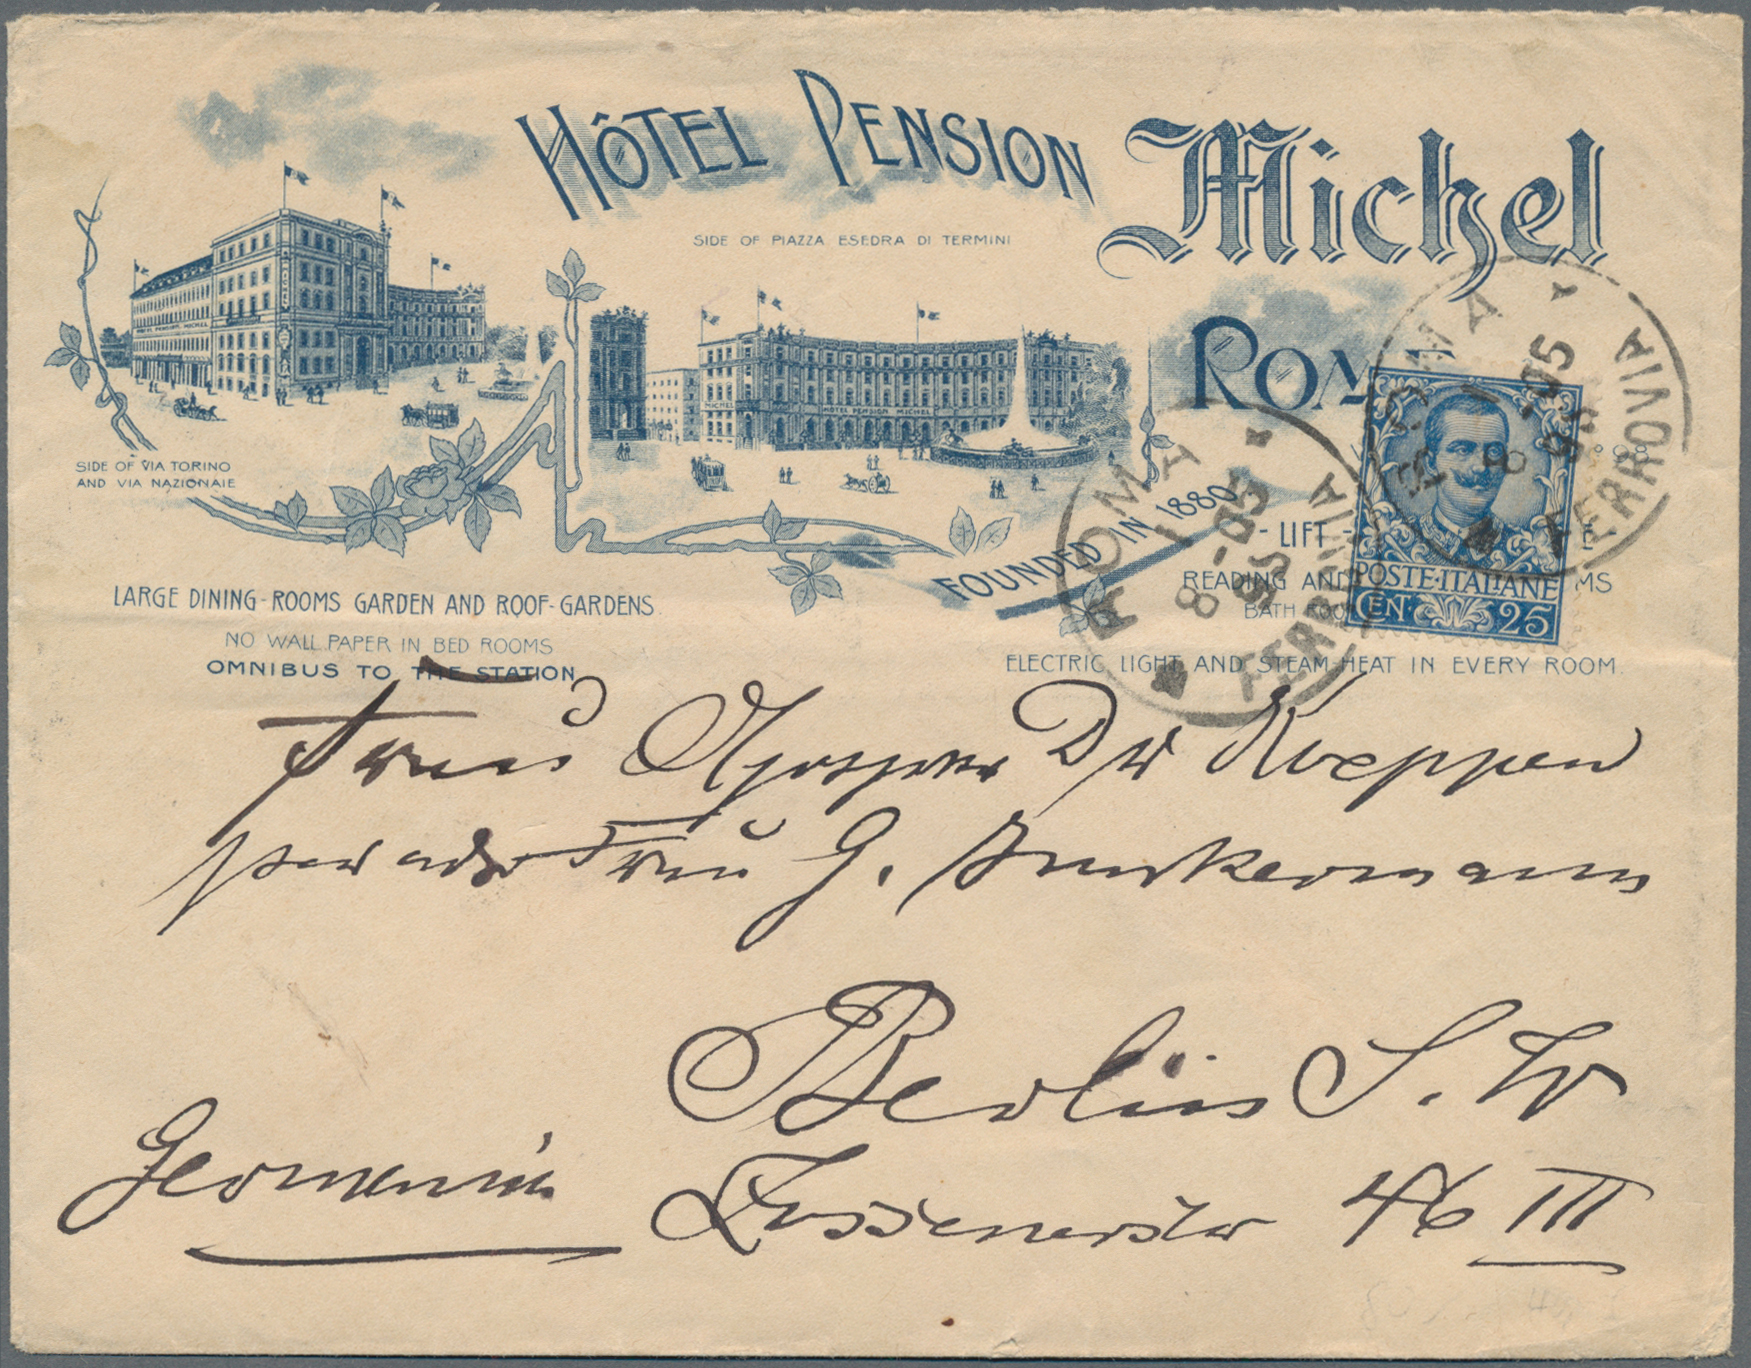 HÔTEL PENSION Michel
SIDE OF PIAZZA ESEDRA DI TERMINI
ROM
HOTEL PENSION MICHEL
MICHEL
HOTEL PENSION MICHEL
SIDE OF VIA TORINO
AND VIA NAZIONALE
FOUNDED IN 1880
- LIFT -
LARGE DINING-ROOMS GARDEN AND ROOF-GARDENS.
READING AND MS
BATH ROO
NO WALL PAPER IN BED ROOMS
OMNIBUS TO THE STATION
ELECTRIC LIGHT AND STEAM-HEAT IN EVERY ROOM.
POSTE·ITALIANE
CEN. 25
ROMA
8-05
FERROVIA
ROMA
05
FERROVIA
Frau Dr Koeppen
Frau G.
Berlin S.W
Germania
Zossenerstr 46 III